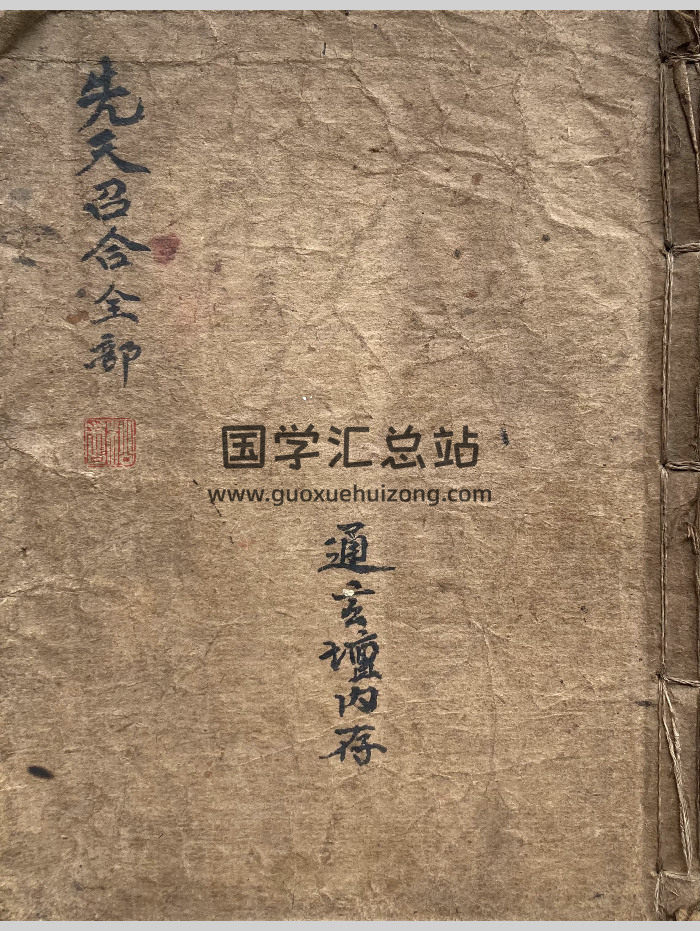 先天召合全部
国学汇总站
www.guoxuehuizong.com
通玄壇内存